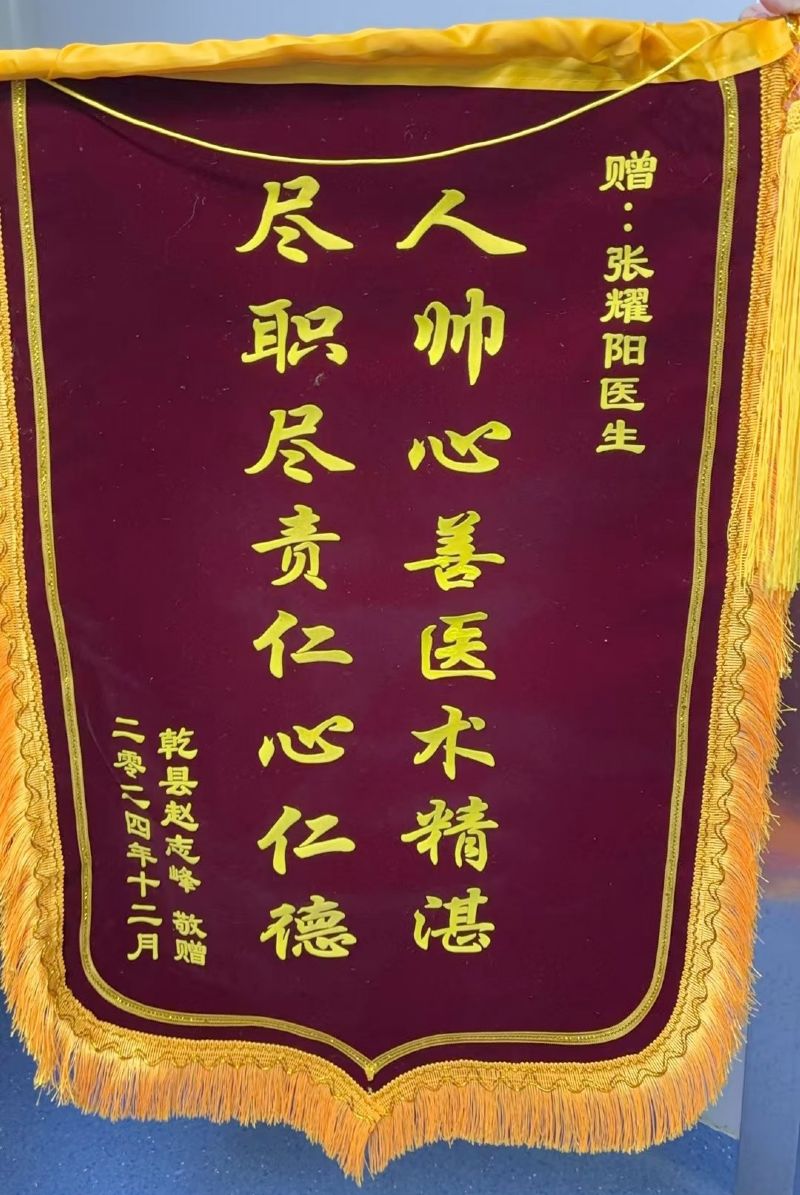 赠：张耀阳医生
人帅心善医术精湛
尽职尽责仁心仁德
乾县赵志峰 敬赠
二零二四年十二月